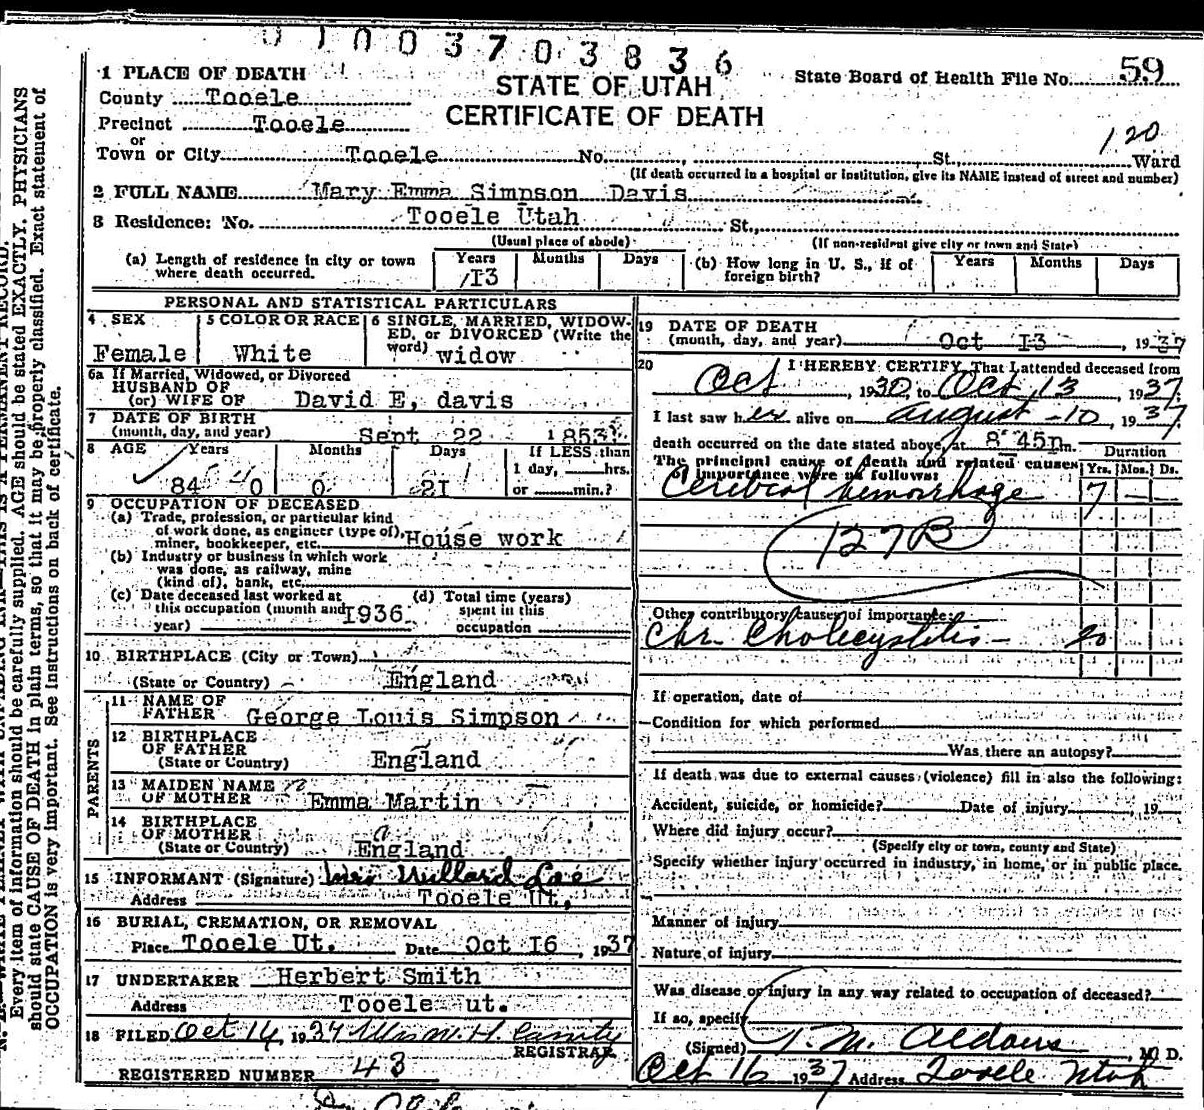 0100370 3836
1 PLACE OF DEATH
STATE OF UTAH
CERTIFICATE OF DEATH
State Board of Health File No. 59
County Tooele
Precinct Tooele
or
Town or City Tooele No. , St., 120 Ward
(If death occurred in a hospital or institution, give its NAME instead of street and number)
2 FULL NAME Mary Emma Simpson Davis
3 Residence: No. Tooele Utah St.,
(Usual place of abode) (If non-resident give city or town and State)
(a) Length of residence in city or town where death occurred. Years 13 Months Days
(b) How long in U. S., if of foreign birth? Years Months Days
PERSONAL AND STATISTICAL PARTICULARS
4 SEX Female
5 COLOR OR RACE White
6 SINGLE, MARRIED, WIDOWED, or DIVORCED (Write the word) widow
6a If Married, Widowed, or Divorced
HUSBAND OF
(or) WIFE OF David E, davis
7 DATE OF BIRTH
(month, day, and year) Sept 22 1853
8 AGE Years Months Days If LESS than
1 day, hrs.
84 0 0 21 or min.?
9 OCCUPATION OF DECEASED
(a) Trade, profession, or particular kind
of work done, as engineer (type of),
miner, bookkeeper, etc. House work
(b) Industry or business in which work
was done, as railway, mine
(kind of), bank, etc.
(c) Date deceased last worked at
this occupation (month and
year) 1936
(d) Total time (years)
spent in this
occupation
10 BIRTHPLACE (City or Town)
(State or Country) England
PARENTS
11 NAME OF
FATHER George Louis Simpson
12 BIRTHPLACE
OF FATHER
(State or Country) England
13 MAIDEN NAME
OF MOTHER Emma Martin
14 BIRTHPLACE
OF MOTHER
(State or Country) England
15 INFORMANT (Signature) Mrs Lee
Address Tooele Ut,
16 BURIAL, CREMATION, OR REMOVAL
Place Tooele Ut. Date Oct 16, 1937
17 UNDERTAKER Herbert Smith
Address Tooele ut.
18 FILED Oct 14, 1937 Mrs M. H.
REGISTRAR
REGISTERED NUMBER 43
19 DATE OF DEATH
(month, day, and year) Oct 13, 1937
20 I HEREBY CERTIFY, That I attended deceased from
Oct, 1930, to Oct 13, 1937.
I last saw her alive on August -10, 1937
death occurred on the date stated above, at 8 45p m.
The principal cause of death and related causes
of importance were as follows:
Duration
Yrs. Mos. Ds.
Cerebral hemorrhage 7 —
127B
Other contributory causes of importance:
Chr. Cholecystitis — 20
If operation, date of
Condition for which performed
Was there an autopsy?
If death was due to external causes (violence) fill in also the following:
Accident, suicide, or homicide? Date of injury , 19
Where did injury occur?
(Specify city or town, county and State)
Specify whether injury occurred in industry, in home, or in public place.
Manner of injury
Nature of injury
Was disease or injury in any way related to occupation of deceased?
If so, specify
(Signed) , M D.
Oct 16 1937 Address Tooele Utah
Every item of information should be carefully supplied. AGE should be stated EXACTLY. PHYSICIANS
should state CAUSE OF DEATH in plain terms, so that it may be properly classified. Exact statement of
OCCUPATION is very important. See instructions on back of certificate.